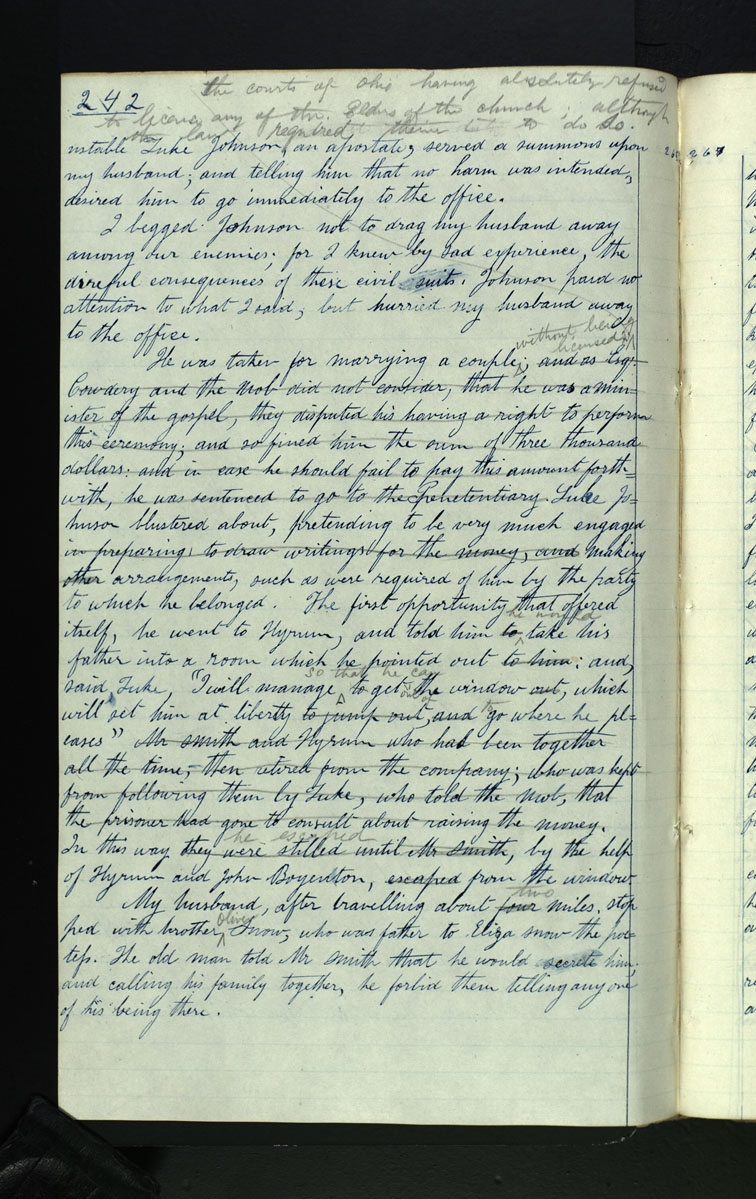 the courts of Ohio having absolutely refused
242
to license any of the Elders of the church; although
the law required them to do so.
nstable Luke Johnson, an apostate, served a summons upon
my husband; and telling him that no harm was intended,
desired him to go immediately to the office.
I begged Johnson not to drag my husband away
among our enemies; for I knew by sad experience, the
direful consequences of these civil suits. Johnson paid no
attention to what I said, but hurried my husband away
to the office.
without being
licensed
He was taken for marrying a couple; and as Esqr.
Cowdery and the mob did not consider, that he was a min=
ister of the gospel, they disputed his having a right to perform
this ceremony; and so fined him the sum of three thousand
dollars: and in case he should fail to pay this amount forth=
with, he was sentenced to go to the Penetentiary. Luke Jo=
hnson blustered about, pretending to be very much engaged
in preparing to draw writings for the money, and making
other arrangements, such as were required of him by the party
to which he belonged. The first opportunity that offered
he would
itself, he went to Hyrum, and told him to take his
father into a room which he pointed out to him: and,
so that he can
said Luke, "I will manage to get the window out, which
out of
will set him at liberty to jump out, and go where he pl=
eases" Mr Smith and Hyrum who had been together
all the time, then retired from the company; who was kept
from following them by Luke, who told the mob, that
the prisoner had gone to consult about raising the money.
he escaped
In this way they were stilled until Mr Smith, by the help
of Hyrum and John Boyenton, escaped from the window
two
My husband, after travelling about four miles, stop
Oliver
ped with brother Snow, who was father to Eliza snow the poe=
tess. The old man told Mr Smith that he would secrete him;
and calling his family together, he forbid them telling any one
of his being there.
267